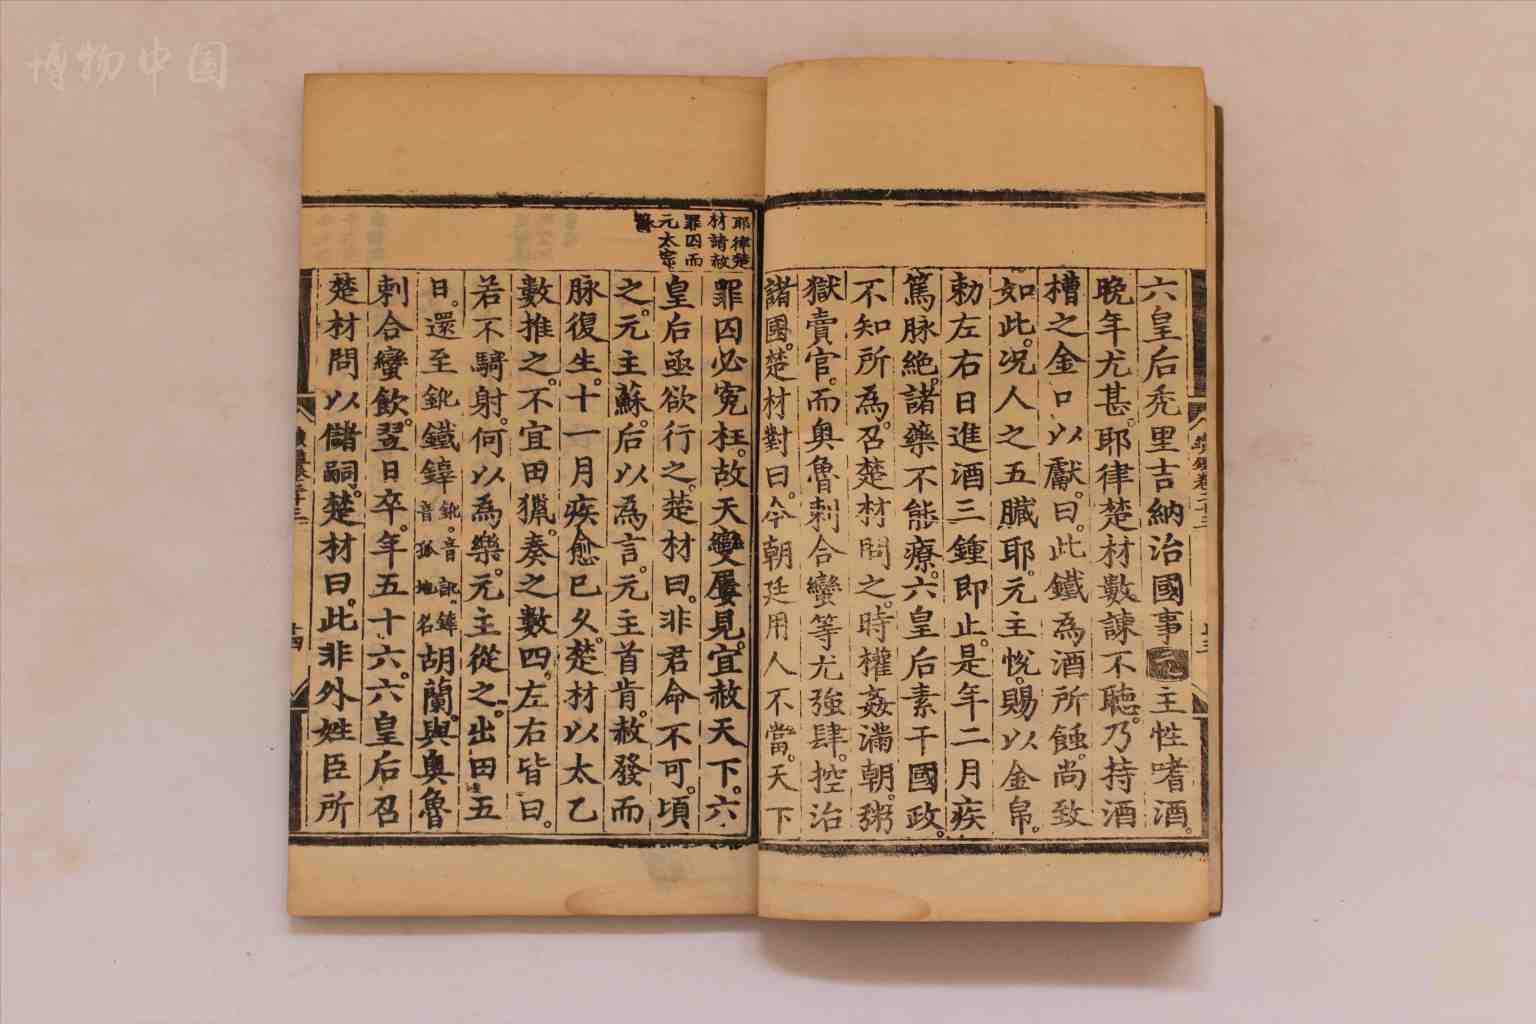 博物中国
六皇后禿里吉納治國事元主性嗜酒。
晩年尤甚。耶律楚材數諫不聽。乃持酒
槽之金口以獻。曰。此鐵為酒所蝕。尚致
如此。况人之五臟耶。元主悅。賜以金帛。
勅左右日進酒三鍾即止。是年二月疾
篤脉絶。諸藥不能療。六皇后素干國政。
不知所為。召楚材問之。時權姦滿朝。粥
獄賣官。而奥魯剌合蠻等尤強肆。控治
諸國。楚材對曰。今朝廷用人不當。天下
耶律楚
材請赦
罪囚而
元太宗
罪囚必寃枉。故天變屢見。宜赦天下。六
皇后亟欲行之。楚材曰。非君命不可。頃
之。元主蘇。后以為言。元主首肯。赦發而
脉復生。十一月疾愈已久。楚材以太乙
數推之。不宜田獵。奏之數四。左右皆曰。
若不騎射。何以為樂。元主從之。出田五
日。還至鈋鐵𨬍鈋。音訛。𨬍音孤地名胡蘭。與奥魯
剌合蠻飲。翌日卒。年五十六。六皇后召
楚材問以儲嗣。楚材曰。此非外姓臣所
十四